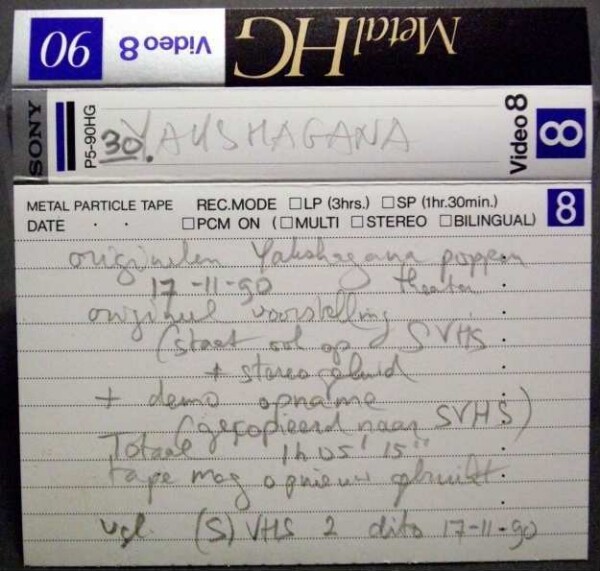 MetalHG Video 8 90
SONY P5-90HG 30. YAKSHAGANA Video 8 8
METAL PARTICLE TAPE REC.MODE □LP (3hrs.) □SP (1hr.30min.) 8
DATE . . □PCM ON (□MULTI □STEREO □BILINGUAL)
originelen Yakshagana poppen
17-11-90 theater
origineel voorstelling
(staat ook op SVHS
+ stereo geluid
+ demo opname
(gecopieerd naar SVHS)
Totaal 1h 05' 15"
tape mag opnieuw gebruikt
vgl. (S)VHS 2 dito 17-11-90